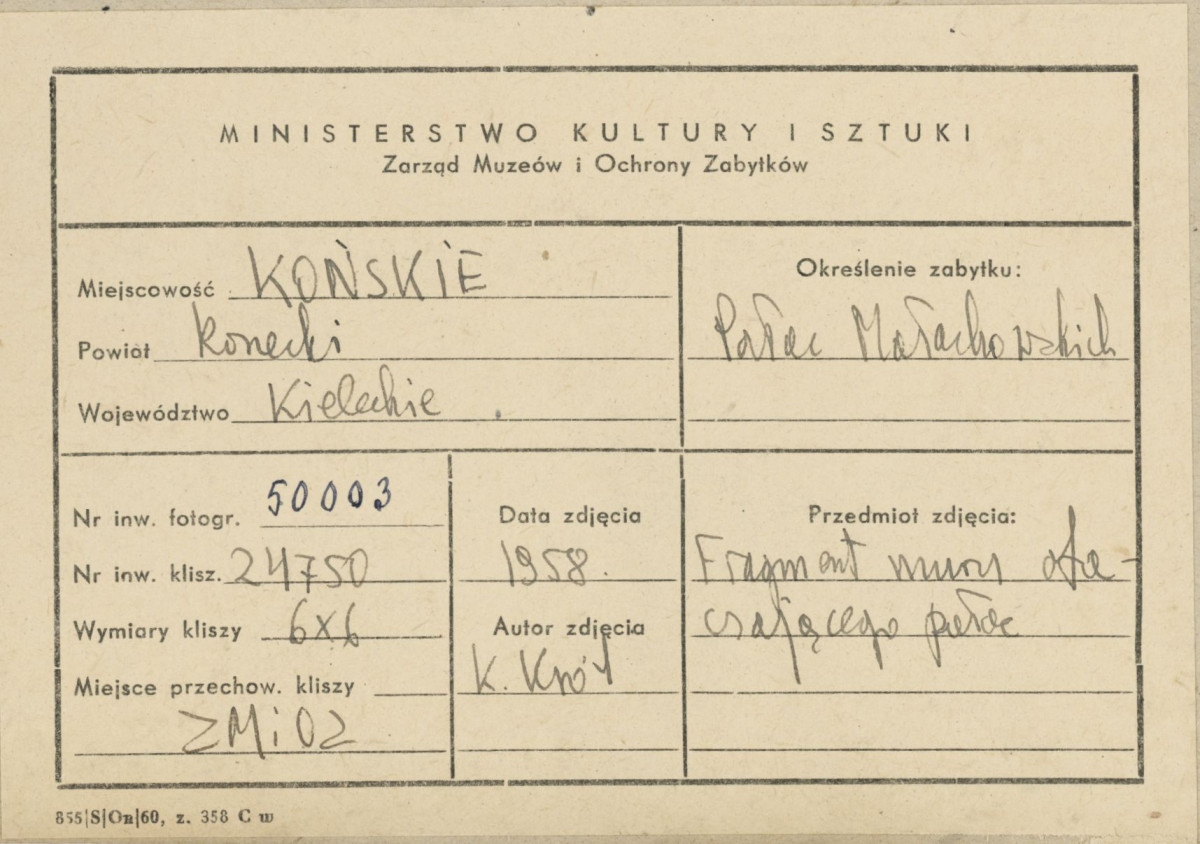 MINISTERSTWO KULTURY I SZTUKI
Zarząd Muzeów i Ochrony Zabytków
Miejscowość KOŃSKIE
Powiat konecki
Województwo Kieleckie
Określenie zabytku:
Pałac Małachowskich
Nr inw. fotogr. 50003
Nr inw. klisz. 24750
Wymiary kliszy 6x6
Miejsce przechow. kliszy
ZMiOZ
Data zdjęcia
1958.
Autor zdjęcia
K. Król
Przedmiot zdjęcia:
Fragment muru ota-
czającego pałac
855|S|On|60, z. 358 C w